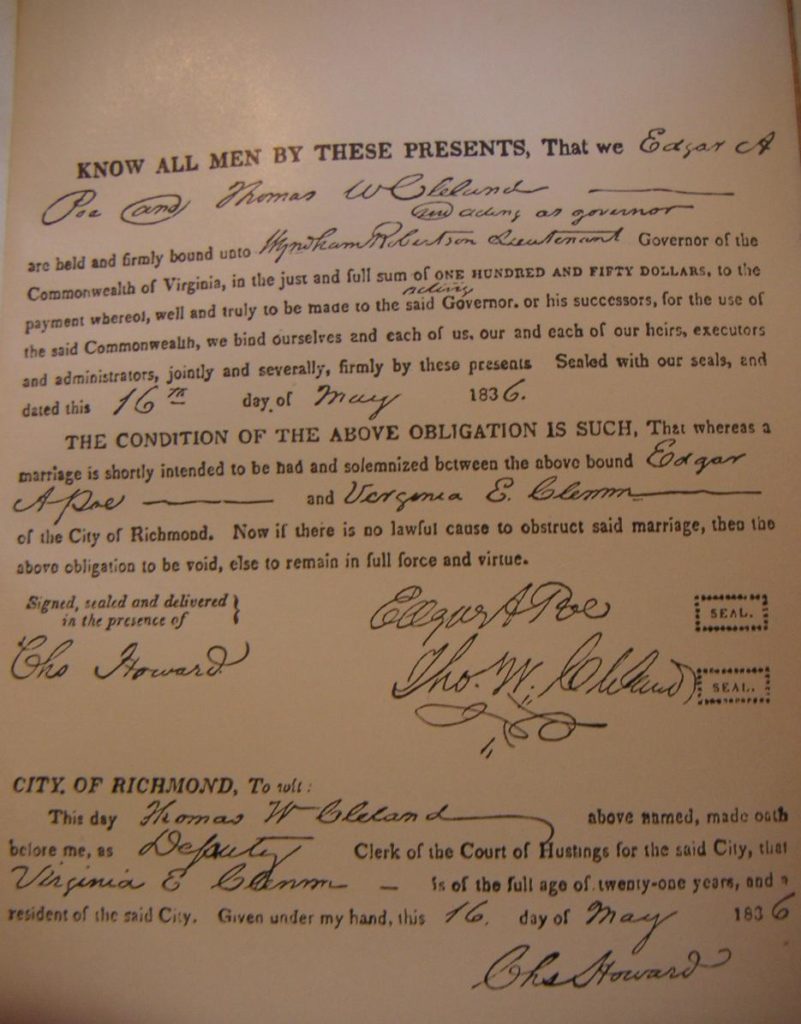 KNOW ALL MEN BY THESE PRESENTS, That we Edgar A
Poe and Thomas W Cleland
and acting as governor
are held and firmly bound unto Wyndham Robertson Lieutenant Governor of the
Commonwealth of Virginia, in the just and full sum of ONE HUNDRED AND FIFTY DOLLARS, to the
acting
payment whereof, well and truly to be made to the said Governor. or his successors, for the use of
the said Commonwealth, we bind ourselves and each of us, our and each of our heirs, executors
and administrators, jointly and severally, firmly by these presents Sealed with our seals, and
dated this 16th day of May 1836.
THE CONDITION OF THE ABOVE OBLIGATION IS SUCH, That whereas a
marriage is shortly intended to be had and solemnized between the above bound Edgar
A Poe and Virginia E. Clemm
of the City of Richmond. Now if there is no lawful cause to obstruct said marriage, then the
above obligation to be void, else to remain in full force and virtue.
Signed, sealed and delivered }
in the presence of
Edgar A Poe SEAL.
Chs Howard
Tho. W. Cleland SEAL.
CITY. OF RICHMOND, To wit:
This day Thomas W Cleland above named, made oath
before me, as Deputy Clerk of the Court of Hustings for the said City, that
Virginia E Clemm is of the full age of twenty-one years, and a
resident of the said City. Given under my hand, this 16. day of May 1836
Chs Howard